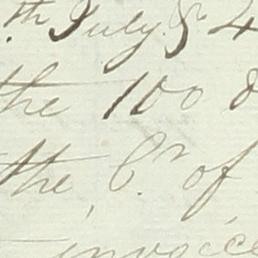 th July & 4
the 100 d
the Cr. of
invoice